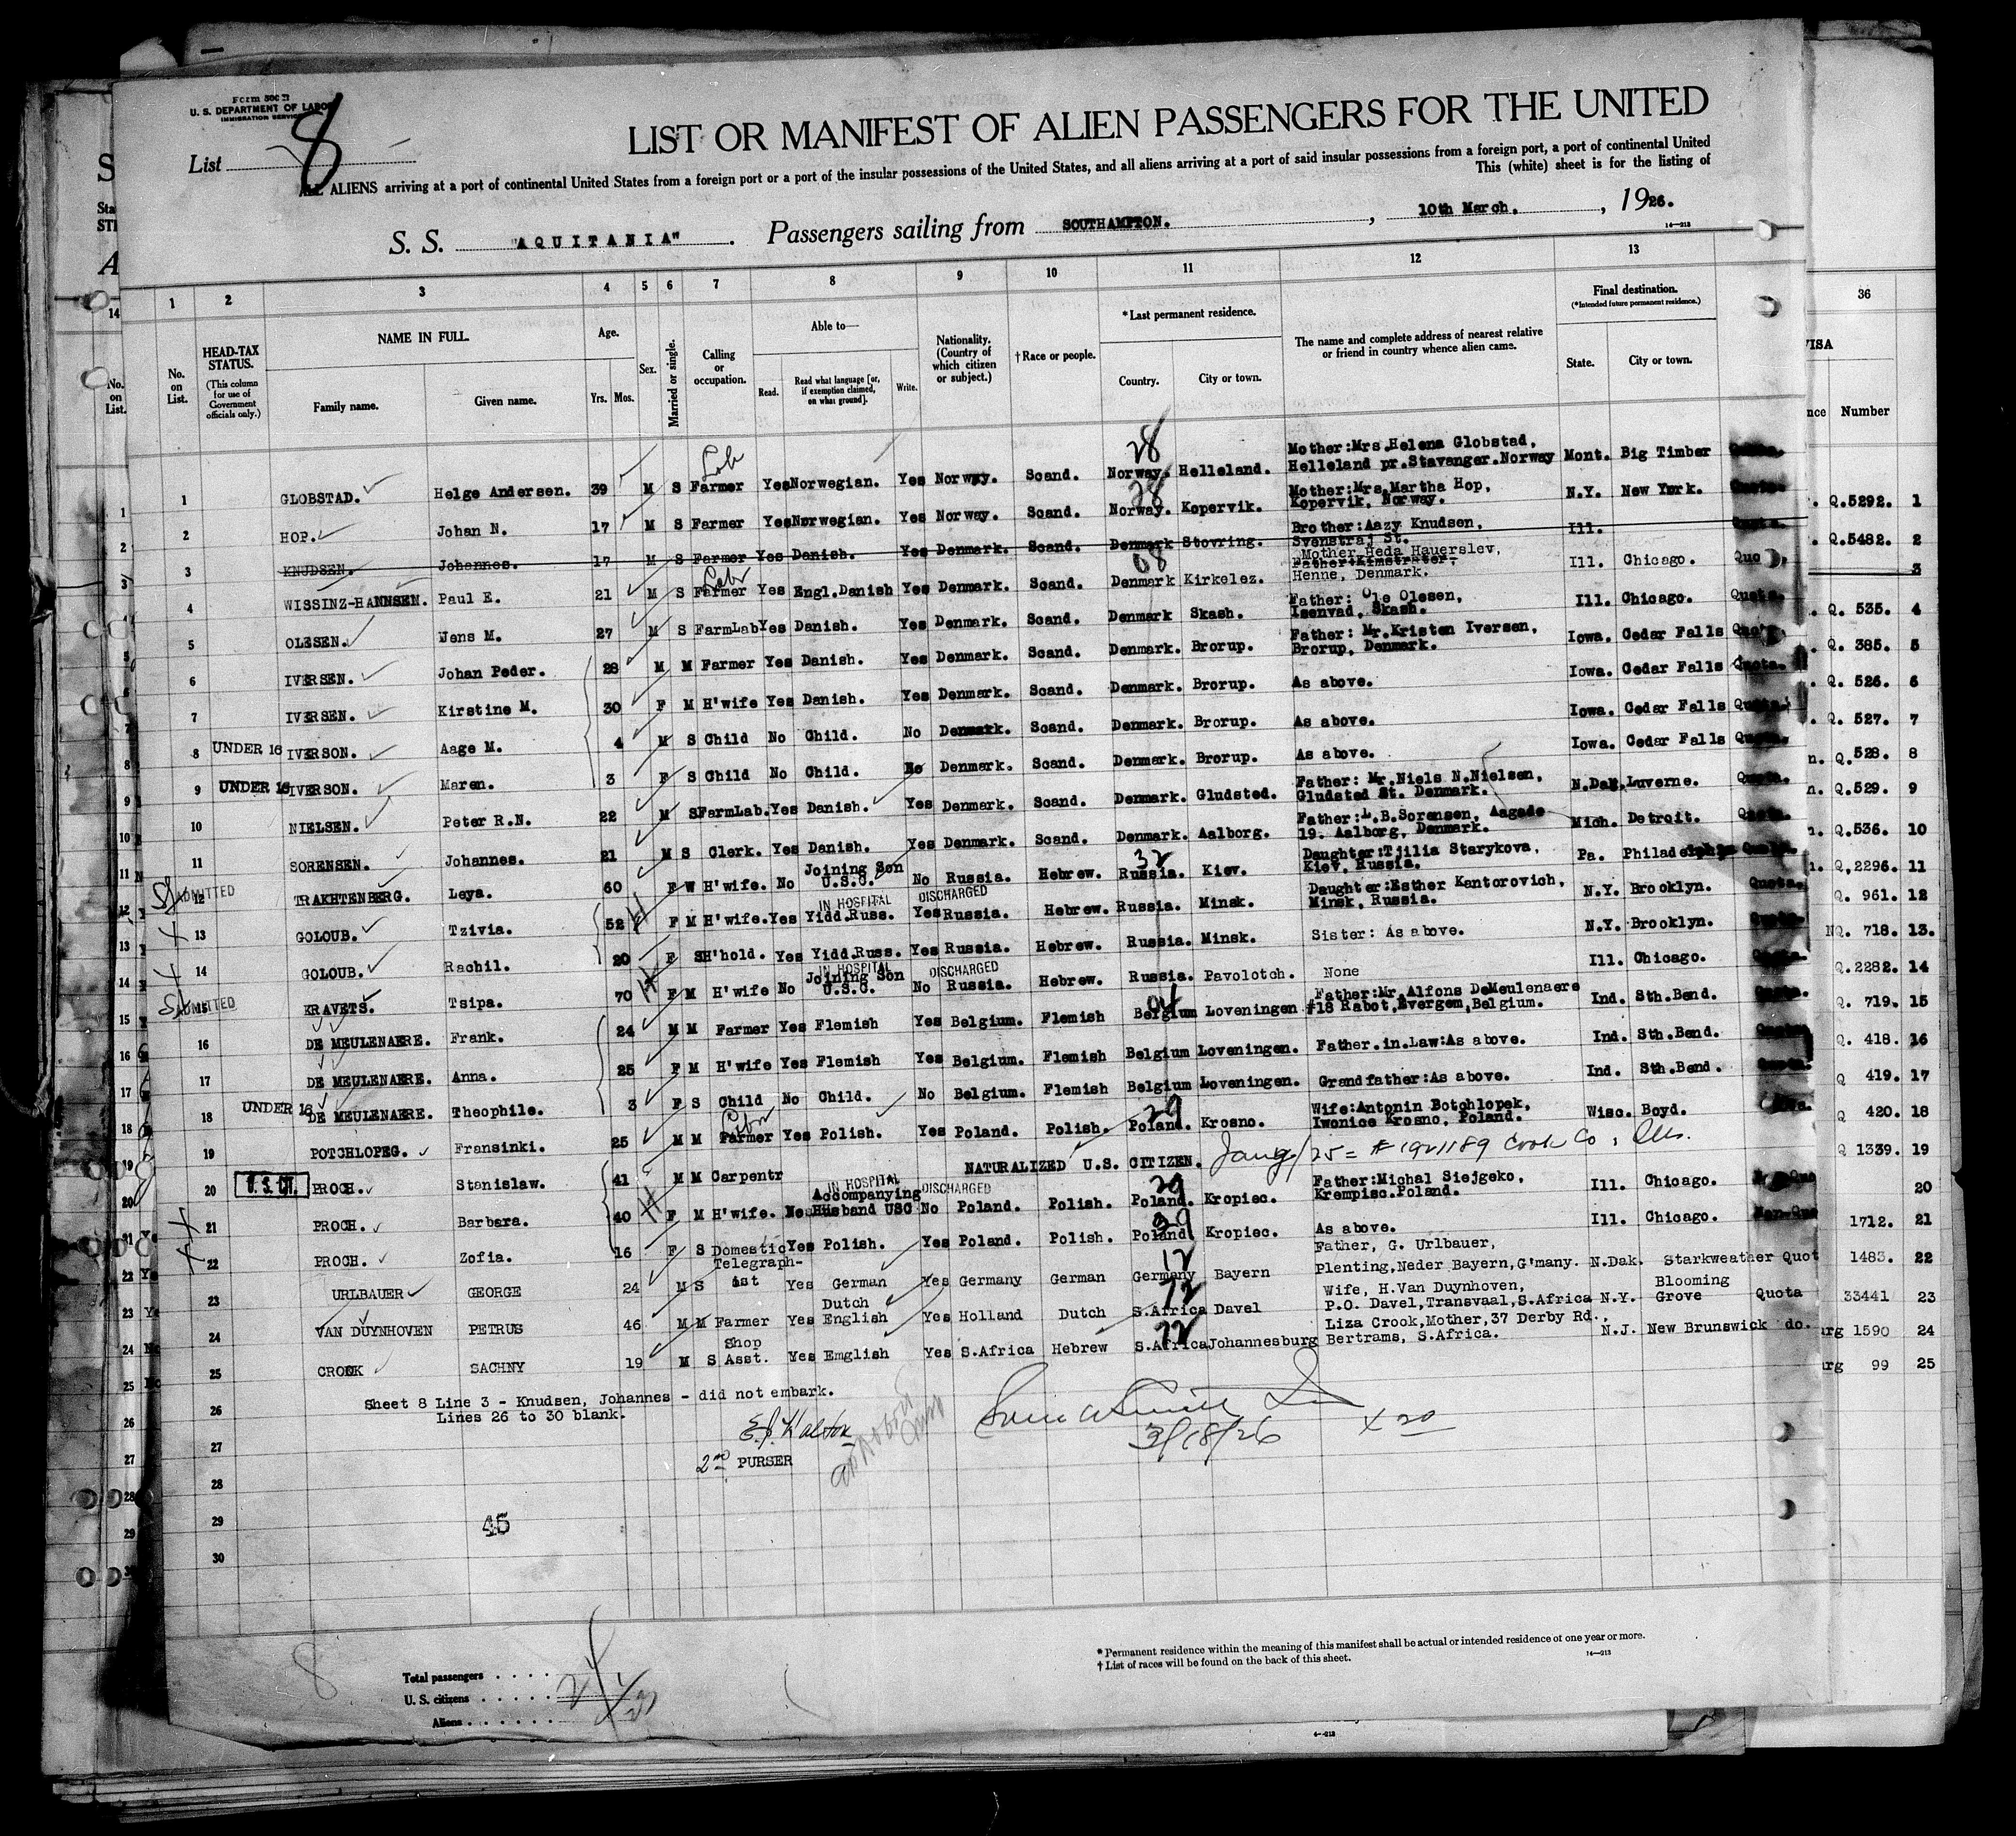 Form 500
U. S. DEPARTMENT OF LABOR
IMMIGRATION SERVICE
List 8
LIST OR MANIFEST OF ALIEN PASSENGERS FOR THE UNITED
ALL ALIENS arriving at a port of continental United States from a foreign port or a port of the insular possessions of the United States, and all aliens arriving at a port of said insular possessions from a foreign port, a port of continental United
This (white) sheet is for the listing of
S. S. "AQUITANIA". Passengers sailing from SOUTHAMPTON. , 10th March. , 1926.
16—213
1 2 3 4 5 6 7 8 9 10 11 12 13 36
No. on List.
HEAD-TAX STATUS.
(This column for use of Government officials only.)
NAME IN FULL.
Family name. Given name.
Age.
Yrs. Mos.
Sex.
Married or single.
Calling or occupation.
Able to—
Read. Read what language [or, if exemption claimed, on what ground]. Write.
Nationality. (Country of which citizen or subject.)
† Race or people.
* Last permanent residence.
Country. City or town.
The name and complete address of nearest relative or friend in country whence alien came.
Final destination.
(*Intended future permanent residence.)
State. City or town.
VISA
Number
1 GLOBSTAD. Helge Andersen. 39 M S Farmer Yes Norwegian. Yes Norway. Scand. 28 Norway. Helleland. Mother:Mrs.Helena Globstad, Helleland pr.Stavanger.Norway Mont. Big Timber Q.5292. 1
2 HOP. Johan N. 17 M S Farmer Yes Norwegian. Yes Norway. Scand. 28 Norway. Kopervik. Mother:Mrs.Martha Hop, Kopervik, Norway. N.Y. New York. Q.5482. 2
3 KNUDSEN. Johannes. 17 M S Farmer Yes Danish. Yes Denmark. Scand. Denmark Stovring. Brother:Aazy Knudsen, Svenstraj St. Ill. 3
4 WISSINZ-HANNSEN. Paul E. 21 M S Farmer Yes Engl.Danish Yes Denmark. Scand. 08 Denmark Kirkelez. Mother Heda Hauerslev, Henne, Denmark. Ill. Chicago. Q. 535. 4
5 OLESEN. Jens M. 27 M S FarmLab Yes Danish. Yes Denmark. Scand. Denmark Skash. Father: Ole Olesen, Isenvad, Skash. Ill. Chicago. Quota. Q. 385. 5
6 IVERSEN. Johan Peder. 28 M M Farmer Yes Danish. Yes Denmark. Scand. Denmark. Brorup. Father: Mr.Kristen Iversen, Brorup, Denmark. Iowa. Cedar Falls Quota. Q. 526. 6
7 IVERSEN. Kirstine M. 30 F M H'wife Yes Danish. Yes Denmark. Scand. Denmark. Brorup. As above. Iowa. Cedar Falls Quota. Q. 527. 7
8 UNDER 16 IVERSON. Aage M. 4 M S Child No Child. No Denmark. Scand. Denmark. Brorup. As above. Iowa. Cedar Falls Quota. Q.528. 8
9 UNDER 16 IVERSON. Maren. 3 F S Child No Child. No Denmark. Scand. Denmark. Brorup. As above. Iowa. Cedar Falls Q.529. 9
10 NIELSEN. Peter R.N. 22 M S FarmLab. Yes Danish. Yes Denmark. Scand. Denmark. Gludsted. Father: Mr.Niels N.Nielsen, Gludsted St. Denmark. N.Dak. Luverne. Q.536. 10
11 SORENSEN. Johannes. 21 M S Clerk. Yes Danish. Yes Denmark. Scand. Denmark. Aalborg. Father:L.B.Sorensen, Aagade 19. Aalborg, Denmark. Mich. Detroit. Q.2296. 11
ADMITTED 12 TRAKHTENBERG. Leya. 60 F W H'wife. No Joining Son U.S.C. No Russia. Hebrew. 32 Russia. Kiev. Daughter:Tjilia Starykova, Kiev, Russia. Pa. Philadelphia Quota. Q. 961. 12
13 GOLOUB. Tzivia. 52 F M H'wife. Yes Yidd.Russ. IN HOSPITAL DISCHARGED Yes Russia. Hebrew. Russia. Minsk. Daughter:Esther Kantorovich, Minsk, Russia. N.Y. Brooklyn. Quota. NQ. 718. 13.
14 GOLOUB. Rachil. 20 F S H'hold. Yes Yidd.Russ. Yes Russia. Hebrew. Russia. Minsk. Sister: As above. N.Y. Brooklyn. Q.2282. 14
ADMITTED 15 KRAVETS. Tsipa. 70 F M H'wife No IN HOSPITAL Joining Son U.S.C. DISCHARGED No Russia. Hebrew. Russia. Pavolotch. None Ill. Chicago. Q. 719. 15
16 DE MEULENAERE. Frank. 24 M M Farmer Yes Flemish Yes Belgium. Flemish 04 Belgium Loveningen Father:Mr.Alfons DeMeulenaere #18 Rabot,Evergem,Belgium. Ind. Sth.Bend. Q. 418. 16
17 DE MEULENAERE. Anna. 25 F M H'wife Yes Flemish Yes Belgium. Flemish Belgium Loveningen. Father.in.Law:As above. Ind. Sth.Bend. Q 419. 17
18 UNDER 16 DE MEULENAERE. Theophile. 3 F S Child No Child. No Belgium. Flemish Belgium Loveningen. Grandfather:As above. Ind. Sth.Bend. Q 420. 18
19 POTCHLOPEG. Fransinki. 25 M M Farmer Yes Polish. Yes Poland. Polish. 29 Poland. Krosno. Wife:Antonin Botchlopek, Iwonice Krosno, Poland. Wisc. Boyd. Q 1339. 19
20 U.S.CIT. PROCH. Stanislaw. 41 M M Carpentr NATURALIZED U.S. CITIZEN. # 1921189 Cook Co, Ills. 20
21 PROCH. Barbara. 40 F M H'wife. No IN HOSPITAL Accompanying Husband USC DISCHARGED No Poland. Polish. 29 Poland. Kropiec. Father:Michal Siejgeko, Krempisc.Poland. Ill. Chicago. 1712. 21
22 PROCH. Zofia. 16 F S Domestic Yes Polish. Yes Poland. Polish. 39 Poland Kropiec. As above. Ill. Chicago. Non-Quo 1483. 22
23 URLBAUER GEORGE 24 M S Telegraph-ist Yes German Yes Germany German 12 Germany Bayern Father, G. Urlbauer, Plenting,Neder Bayern,G'many. N.Dak. Starkweather Quot 33441 23
24 VAN DUYNHOVEN PETRUS 46 M M Farmer Yes Dutch English Yes Holland Dutch 72 S.Africa Davel Wife, H.Van Duynhoven, P.O. Davel,Transvaal,S.Africa N.Y. Blooming Grove Quota 1590 24
25 CROOK SACHNY 19 M S Shop Asst. Yes Emglish Yes S.Africa Hebrew 72 S.Africa Johannesburg Liza Crook,Mother,37 Derby Rd., Bertrams, S.Africa. N.J. New Brunswick do. 99 25
26 Sheet 8 Line 3 - Knudsen, Johannes - did not embark.
Lines 26 to 30 blank.
27
2nd PURSER
3/18/26
X 20
28
29 45
30
8
Total passengers
U. S. citizens
Aliens
* Permanent residence within the meaning of this manifest shall be actual or intended residence of one year or more.
† List of races will be found on the back of this sheet.
16—213